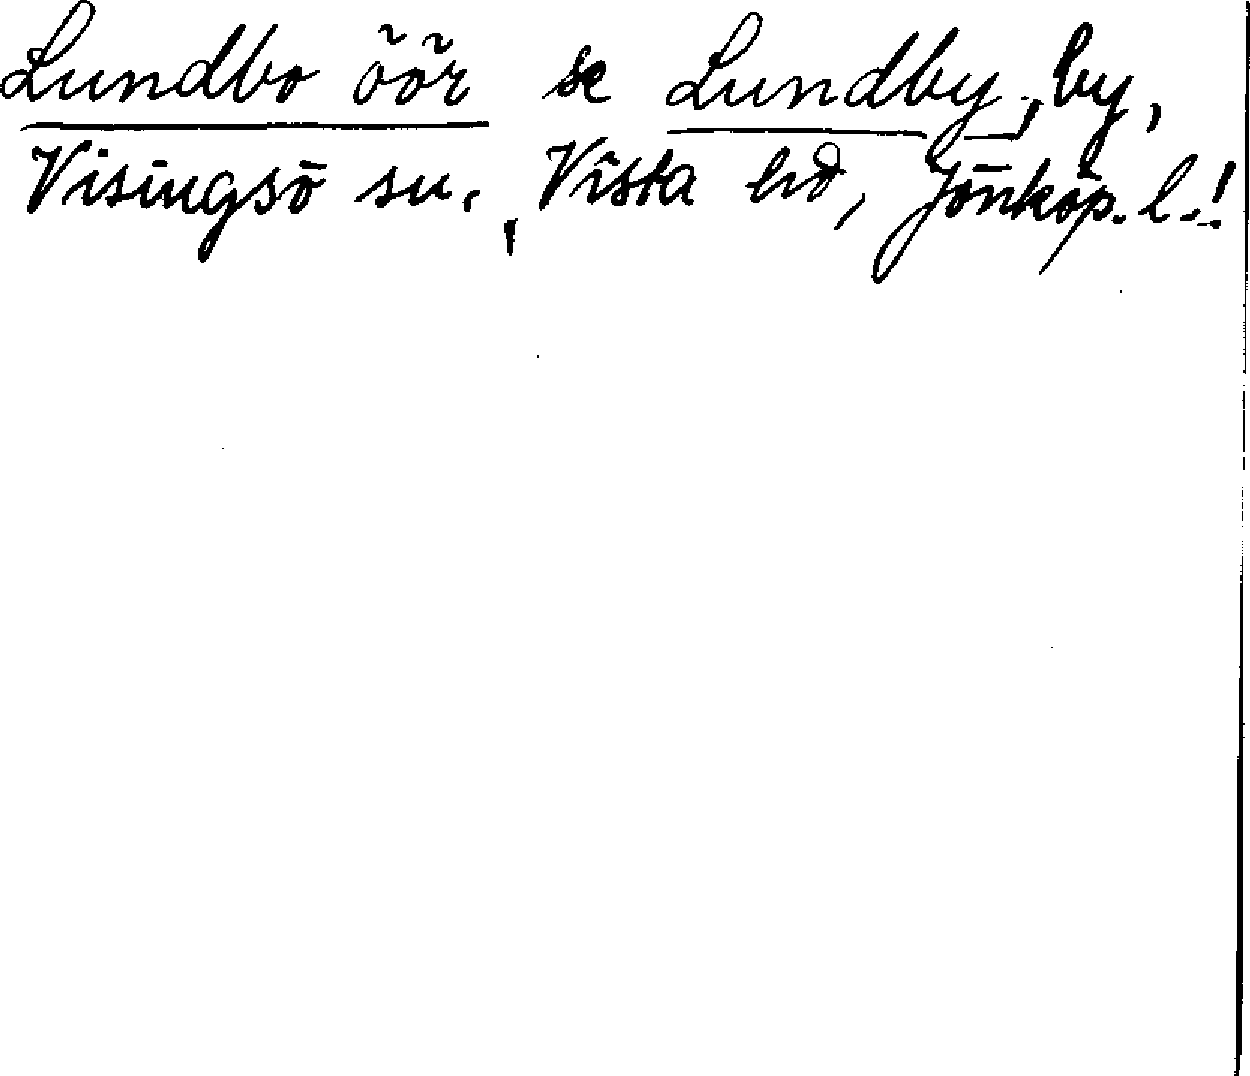 Lundbo öör se Lundby, by,
Visingsö sn., Vista hd, Jönköp. l.!